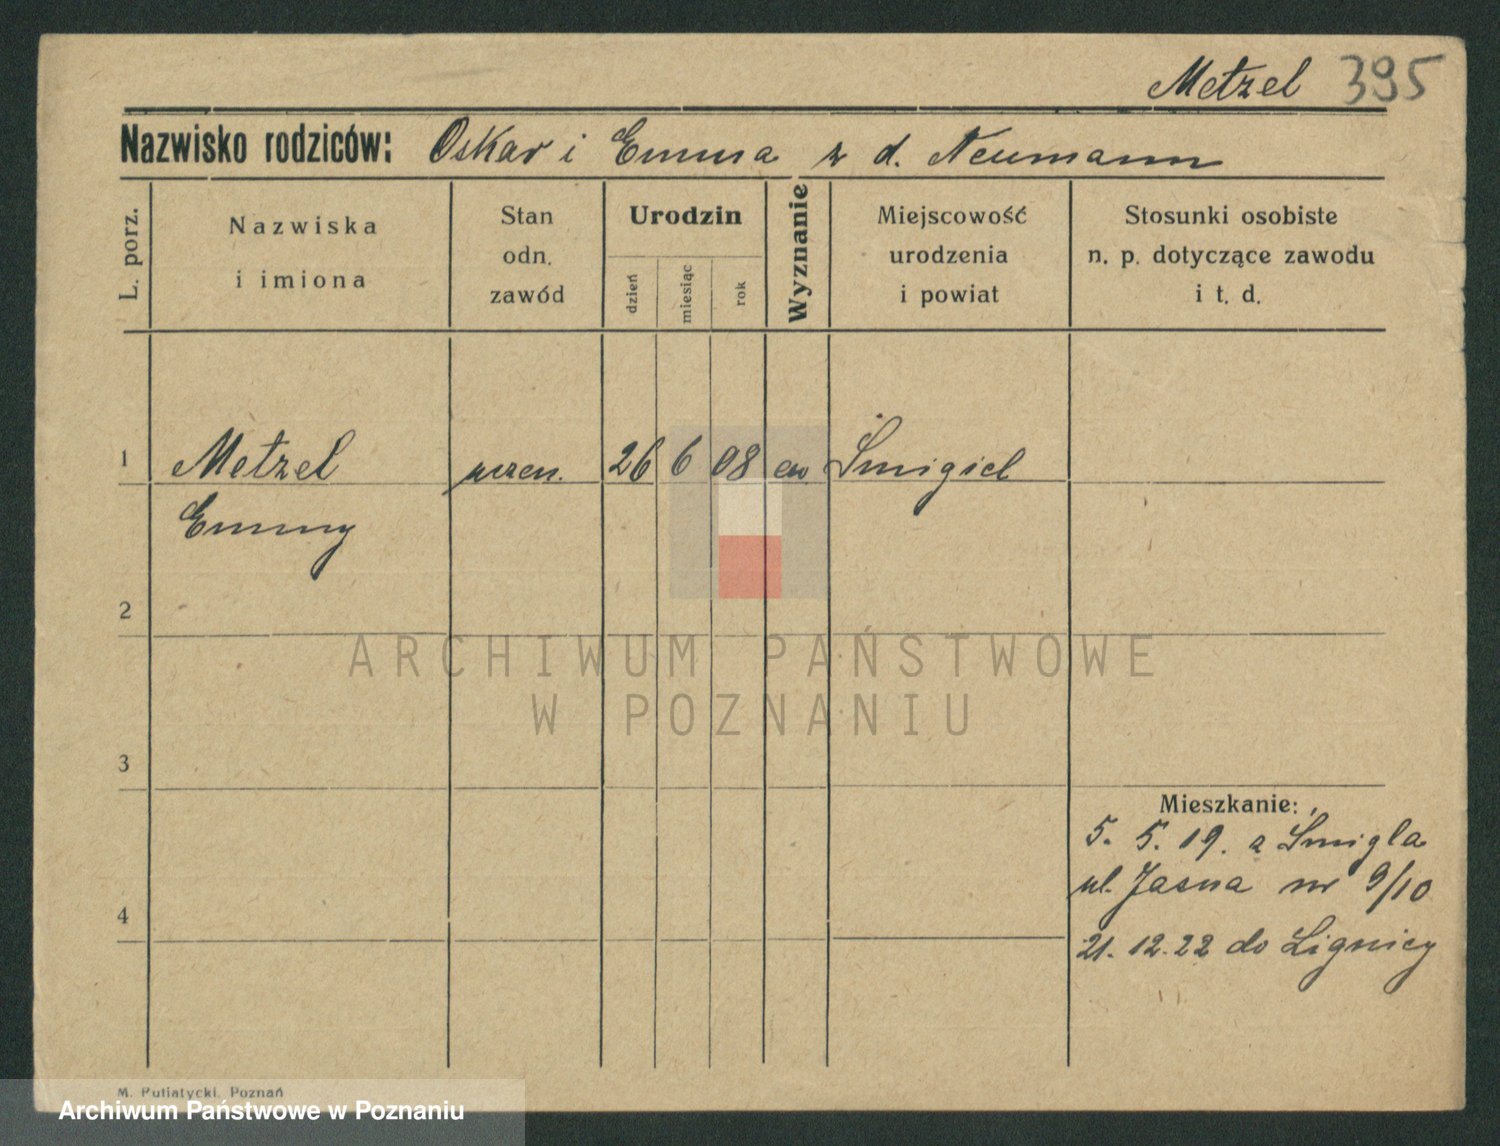 Metzel 395
Nazwisko rodziców: Oskar i Emma z d. Neumann
L. porz.
Nazwiska
i imiona
Stan
odn.
zawód
Urodzin
dzień
miesiąc
rok
Wyznanie
Miejscowość
urodzenia
i powiat
Stosunki osobiste
n. p. dotyczące zawodu
i t. d.
1 Metzel uczen. 26 6 08 ew Śmigiel
Emmy
2
ARCHIWUM PAŃSTWOWE
W POZNANIU
3
Mieszkanie:
5. 5. 19. z Śmigla
ul. Jasna nr 9/10
4
21. 12. 22 do Lignicy
M. Putiatycki, Poznań
Archiwum Państwowe w Poznaniu